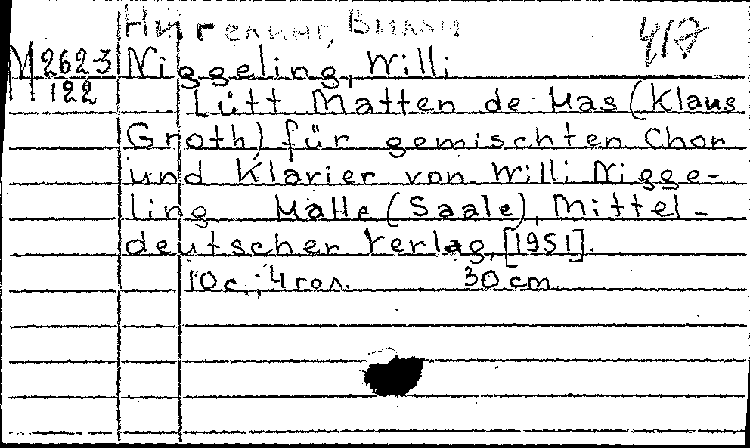 Нигелинг, Вилли
417
М 262-3
122
Niggeling, Willi
Lütt Matten de Has (Klaus
Groth) für gemischten Chor
und Klavier von Willi Nigge-
ling Halle (Saale), Mittel-
deutscher Verlag, [1951].
10 с.; 4 гол. 30 cm